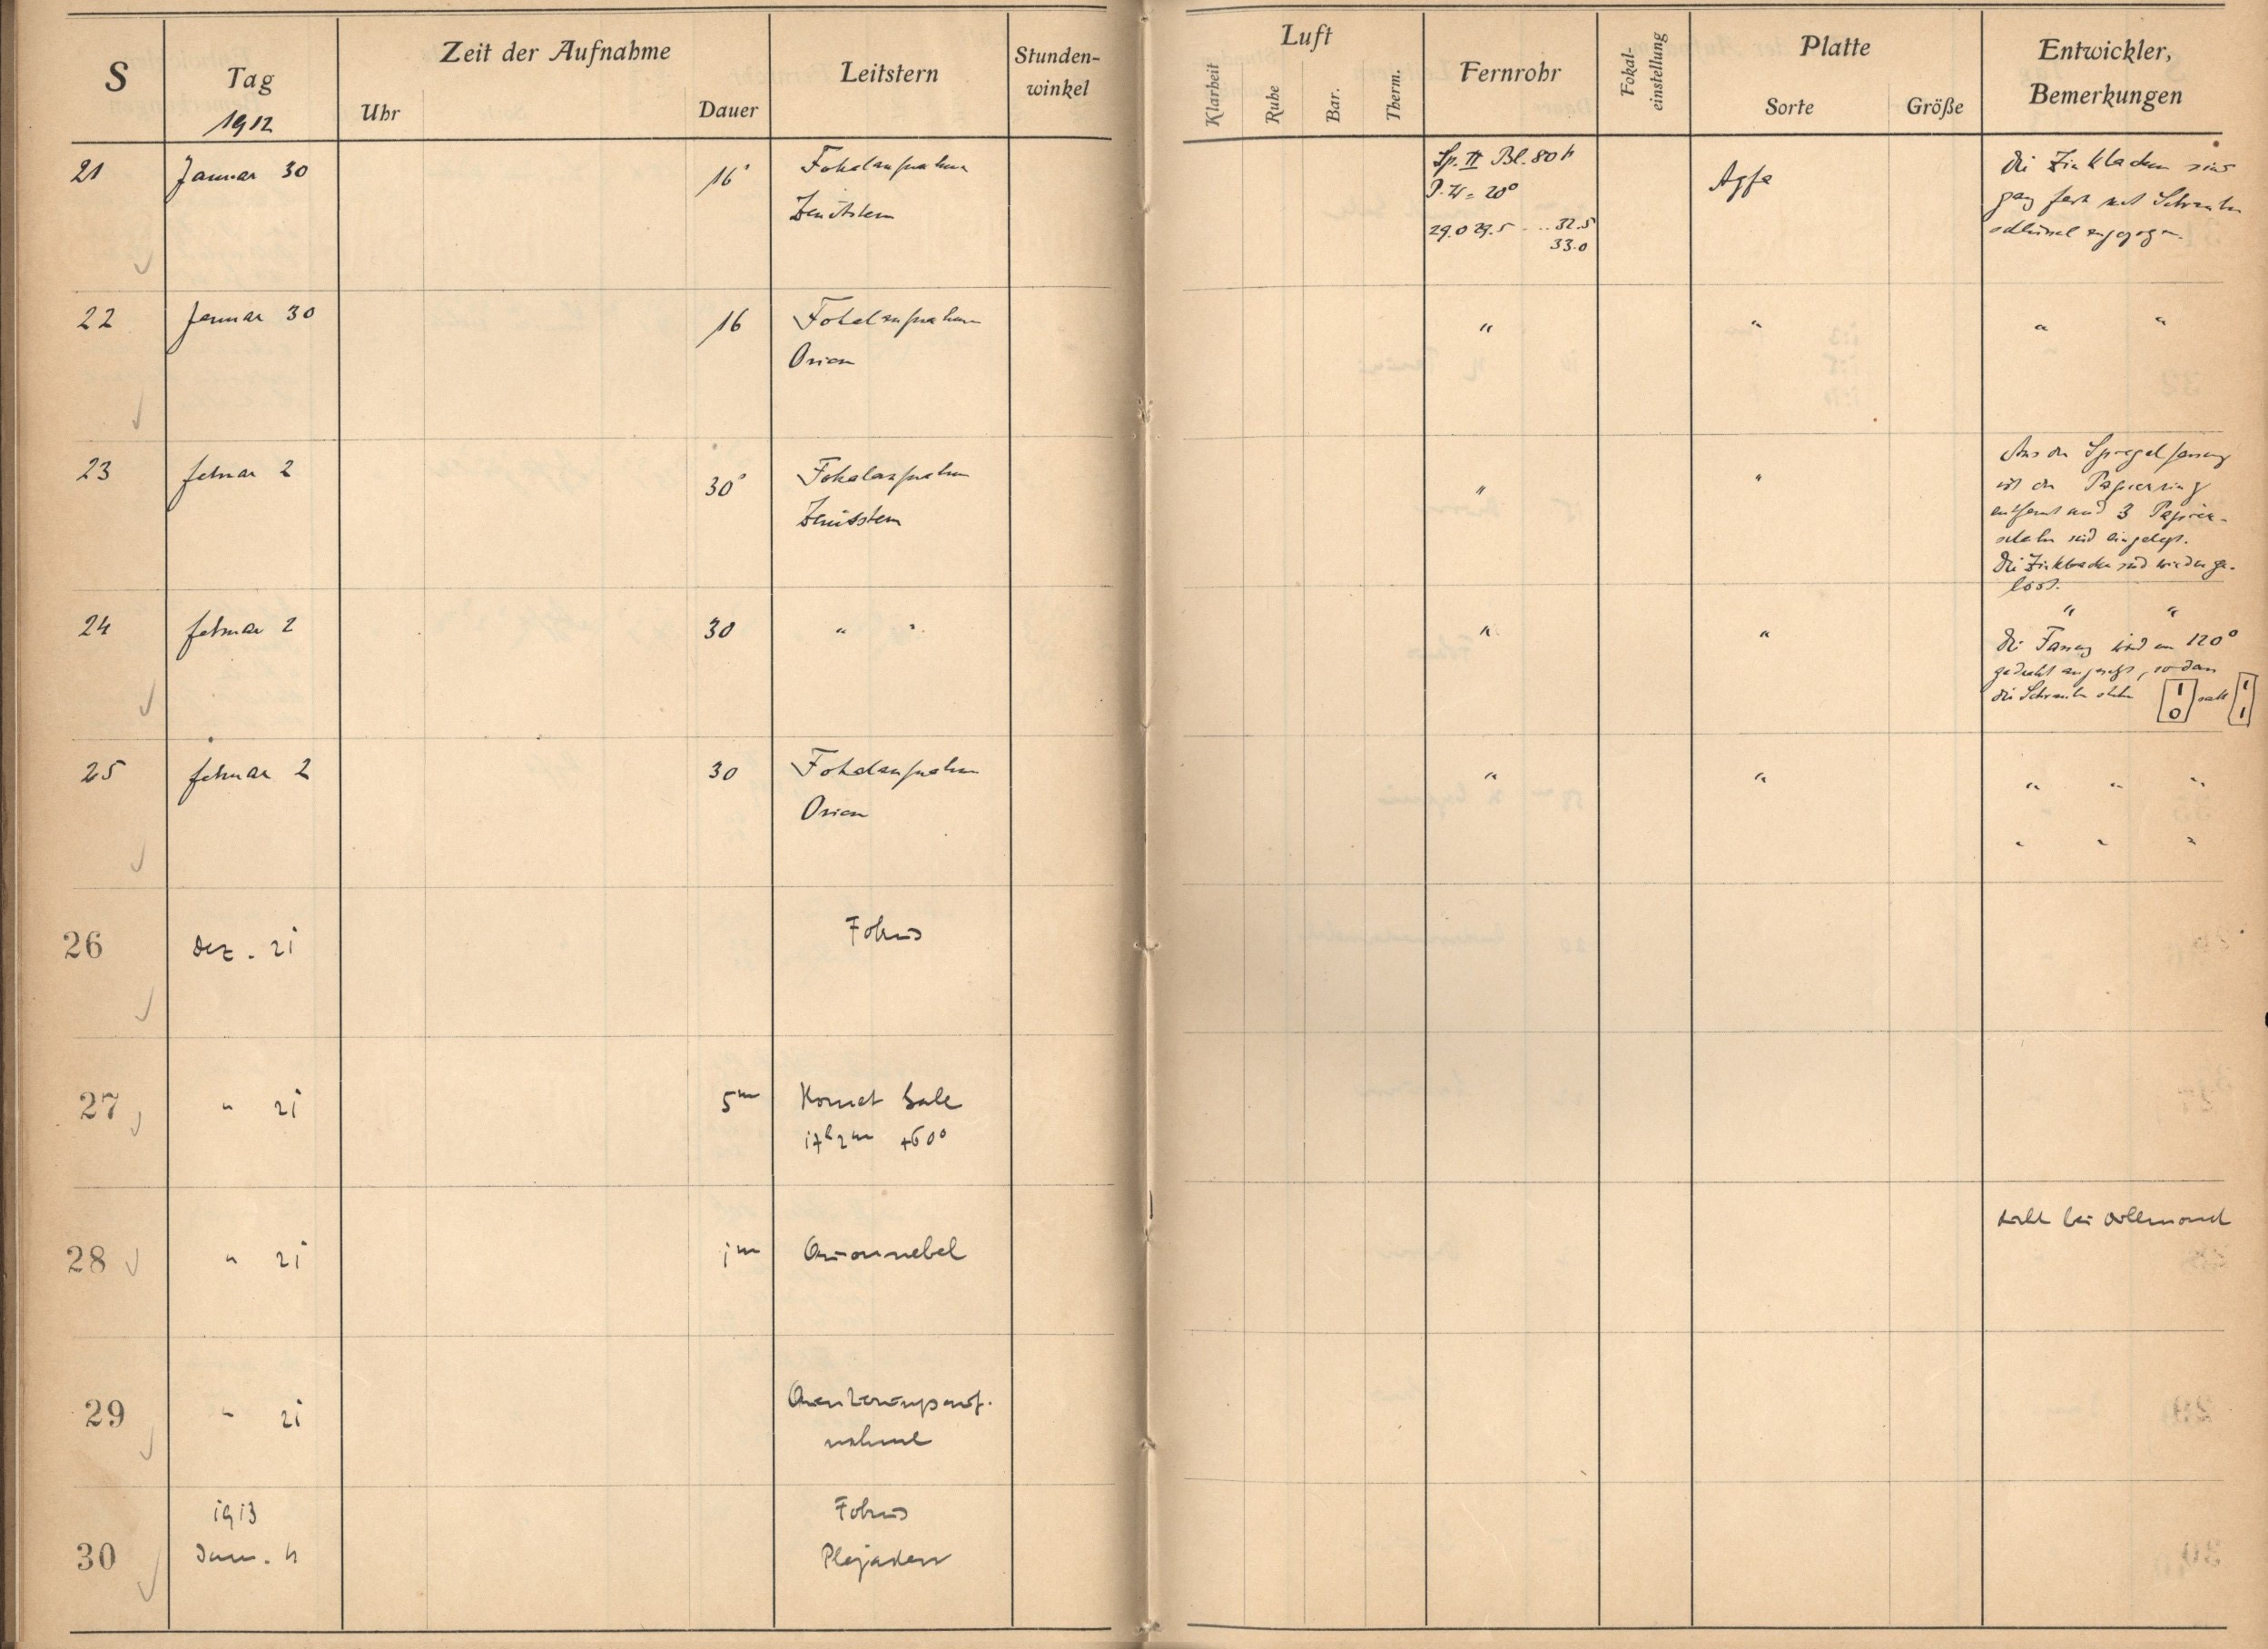 S
Tag
1912
Zeit der Aufnahme
Uhr
Dauer
Leitstern
Stunden-
winkel
Luft
Klarheit
Ruhe
Bar.
Therm.
Fernrohr
Fokal-
einstellung
Platte
Sorte
Größe
Entwickler,
Bemerkungen
21 Januar 30 16 Fokalaufnahme
Zenitstern
Sp. II Bl. 80
P.W = 20°
29.0 29.5 ... 32.5
33.0
Agfa
Die Zinkbacken sind
ganz fest mit Schrauben
schlüssel angezogen.
22 Januar 30 16 Fokalaufnahme
Orion
" " " "
23 Februar 2 30 Fokalaufnahme
Zenitstern
" "
Aus der Spiegelfassung
ist der Papierring
entfernt und 3 Papier-
sind eingelegt.
Die Zinkbacken sind wieder ge-
löst.
24 Februar 2 30 " " " " " "
Die Fassung wird um 120°
gedreht angesetzt, so dass
die Schrauben stehen 1 0 statt 1 1
25 Februar 2 30 Fokalaufnahme
Orion
" " " " "
" " "
26 Dez. 21 Fokus
27 " 21 5m Komet Gale
17h 2m +60°
28 " 21 1m Orionnebel bei Vollmond
29 " 21 Orientierungsauf-
nahme
30 1913
Jan. 4
Fokus
Plejaden